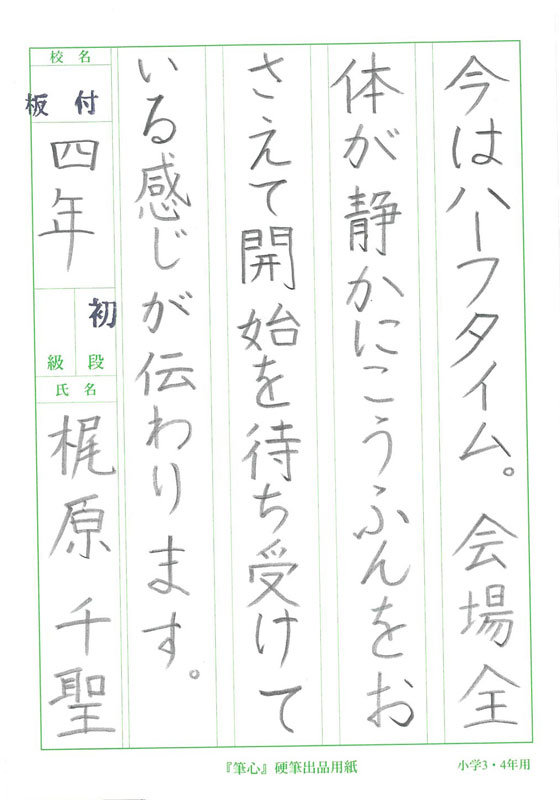 今はハーフタイム。会場全
体が静かにこうふんをお
さえて開始を待ち受けて
いる感じが伝わります。
校名
板付
四年
初
段
級
氏名
梶原千聖
『筆心』硬筆出品用紙
小学3・4年用